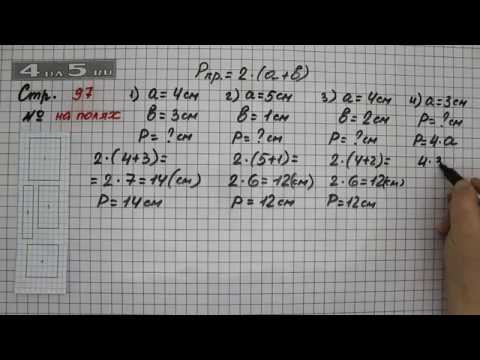 4 на 5 RU
Pпр. = 2·(a+b)
Стр. 97
№ на полях
1) a = 4см
b = 3см
P = ? см
2·(4+3)=
= 2·7 = 14 (см)
P = 14 см
2) a = 5см
b = 1см
P = ? см
2·(5+1)=
2·6 = 12(см)
P = 12 см
3) a = 4см
b = 2см
P = ? см
2·(4+2)=
2·6 = 12(см)
P = 12 см
4) a = 3см
P = ? см
P = 4·a
4·3